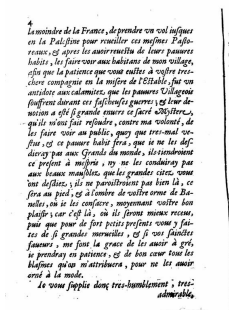 4
la moindre de la France, de prendre vn vol iusques
en la Palestine pour recueillir ces mesmes Pasto-
reaux, & apres les auoir reuestu de leurs pauures
habits, les faire voir aux habitans de mon village,
afin que la patience que vous eustes à vostre tres-
chere compagnie en la misere de l'Estable, fut vn
antidote aux calamitez que les pauures Villageois
souffrent durant ces fascheuses guerres; & leur de-
uotion a esté si grande enuers ce sacré Mystere,
qu'ils m'ont fait resoudre, contre ma volonté, de
les faire voir au public, quoy que tres-mal ve-
stus, & ce pauure habit fera, que ie ne les des-
dieray pas aux Grands du monde, ils tiendroient
ce present à mespris, ny ne les conduiray pas
aux beaux mausolez que les grandes citez vous
ont desdiez; ils ne paroistroient pas bien là, ce
sera au pied, & à l'ombre de vostre orme de Ba-
nelles, où ie les consacre, moyennant vostre bon
plaisir; car c'est là, où ils seront mieux receus,
puis que pour de fort petits presents vous y fai-
tes de si grandes merueilles, & si vos sainctes
faueurs, me font la grace de les auoir à gré,
ie prendray en patience, & de bon cœur tous les
blasmes qu'on m'attribuera, pour ne les auoir
orné à la mode.
Ie vous supplie donc tres-humblement, tres-
admirable,